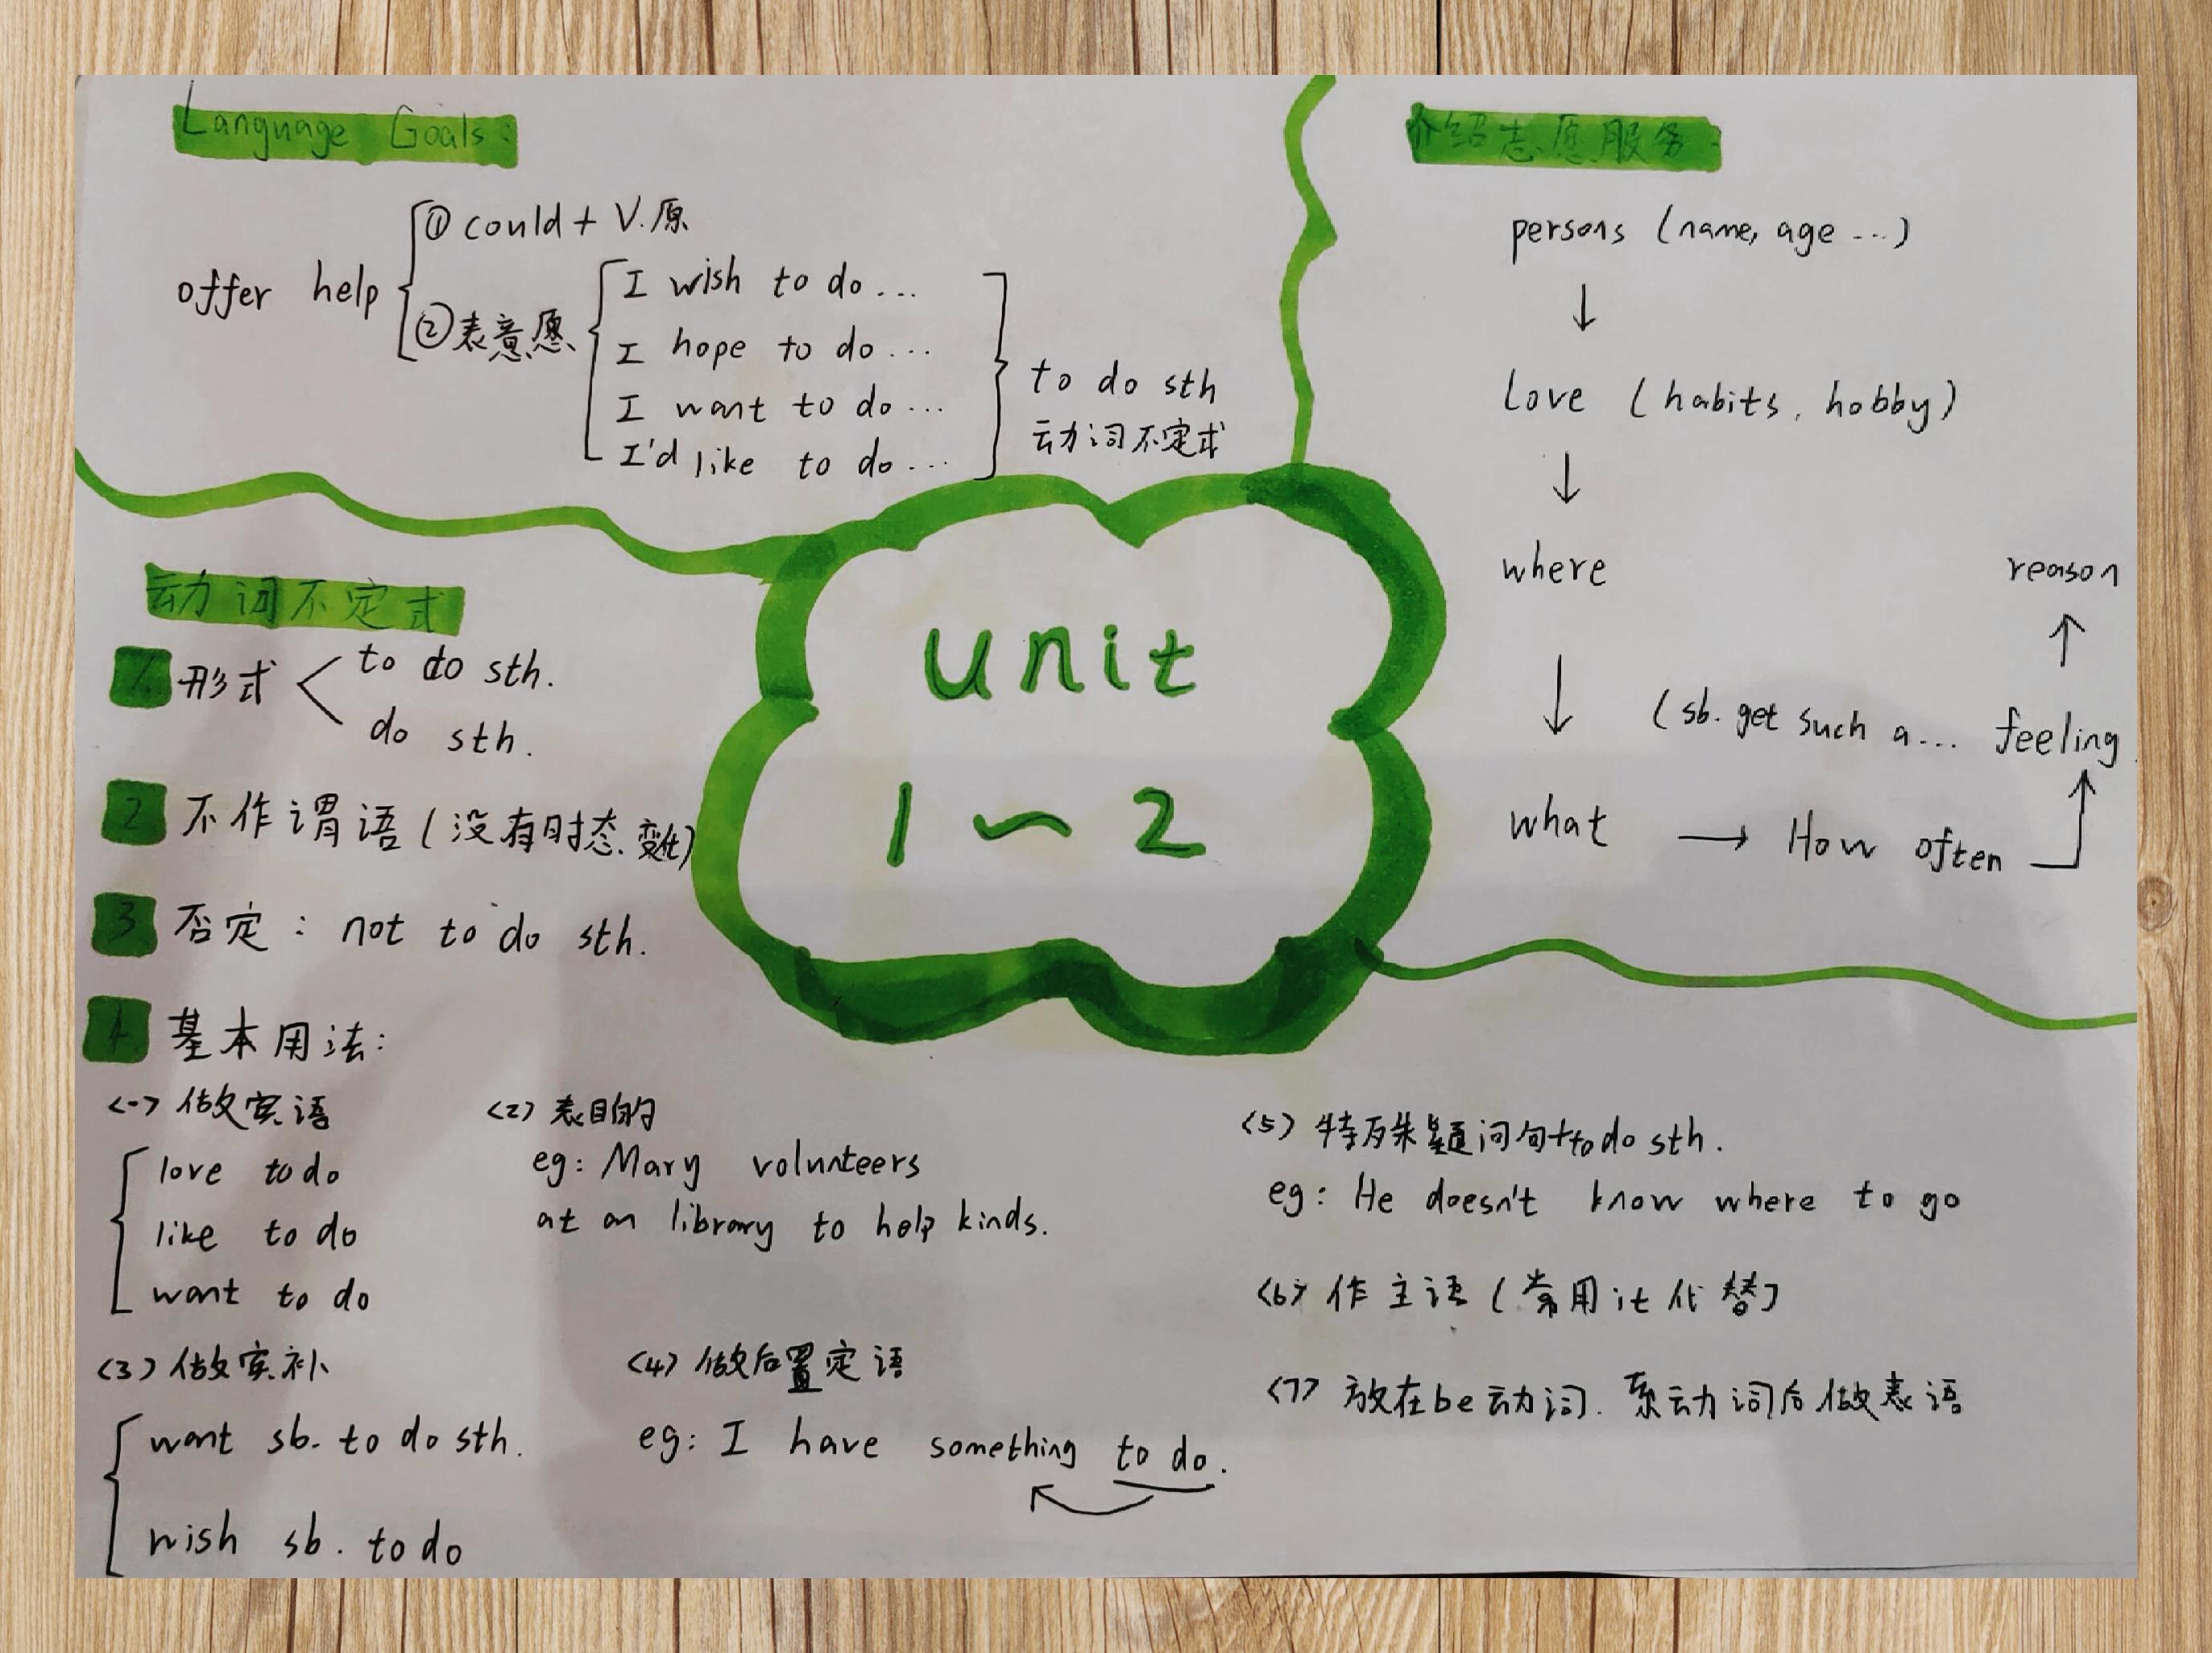 Language Goals:
offer help
① could + V.原
② 表意愿
I wish to do ...
I hope to do ...
I want to do ...
I'd like to do ...
to do sth
动词不定式
介绍志愿服务:
persons (name, age ...)
↓
Love (habits, hobby)
↓
where
↓
what → How often
(sb. get such a... feeling
↑
reason
unit
1~2
动词不定式
1. 形式
to do sth.
do sth.
2 不作谓语(没有时态.变化)
3 否定: not to do sth.
4. 基本用法:
<一> 做宾语
love to do
like to do
want to do
<2> 表目的
eg: Mary volunteers
at an library to help kinds.
<3> 做宾补
want sb. to do sth.
wish sb. to do
<4> 做后置定语
eg: I have something to do.
<5> 特殊疑问句+to do sth.
eg: He doesn't know where to go
<6> 作主语(常用it代替)
<7> 放在be动词.系动词后做表语